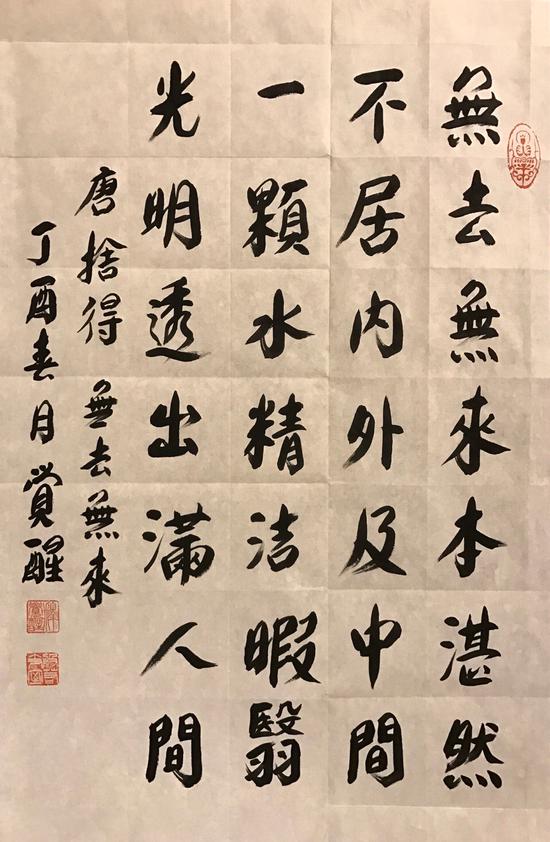 無去無來本湛然
不居内外及中間
一顆水精洁暇翳
光明透出滿人間
唐捨得 無去無來
丁酉春月覺醒